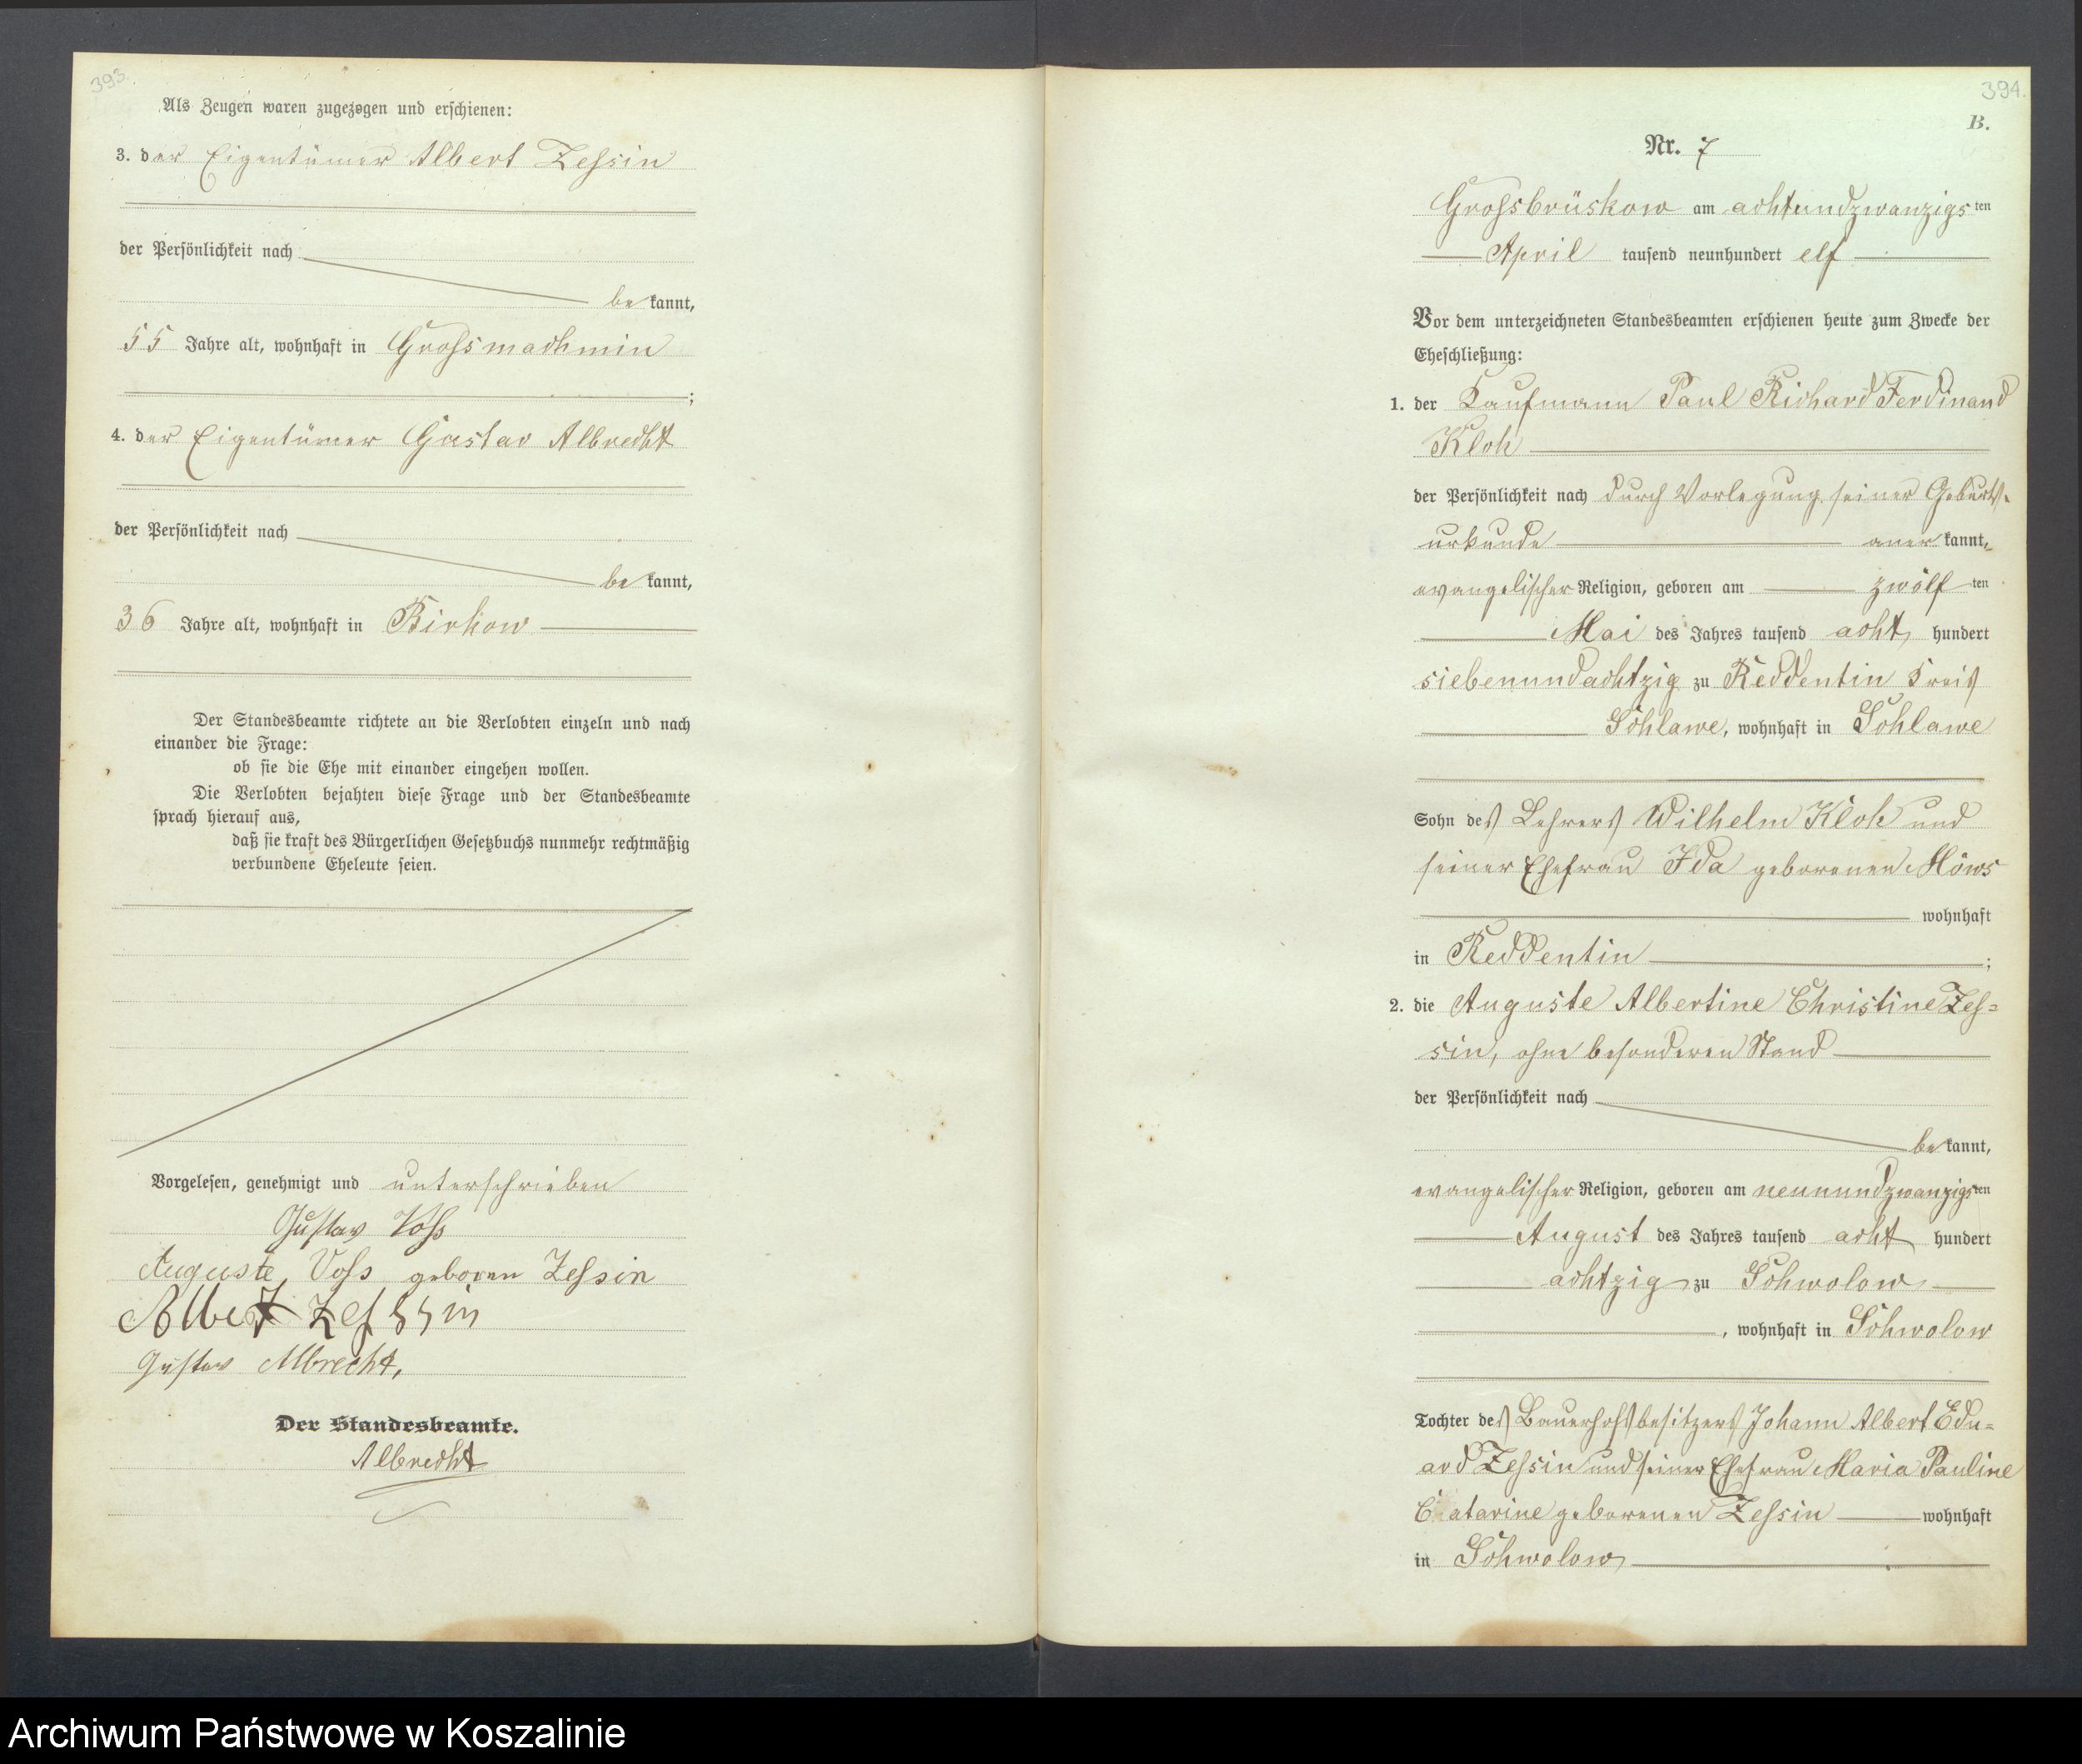 393.
Als Zeugen waren zugezogen und erschienen:
3. der Eigentümer Albert Zessin
der Persönlichkeit nach
bekannt,
55 Jahre alt, wohnhaft in Grossmachmin
;
4. der Eigentümer Gustav Albrecht
der Persönlichkeit nach
bekannt,
36 Jahre alt, wohnhaft in Birkow
Der Standesbeamte richtete an die Verlobten einzeln und nach
einander die Frage:
ob sie die Ehe mit einander eingehen wollen.
Die Verlobten bejahten diese Frage und der Standesbeamte
sprach hierauf aus,
daß sie kraft des Bürgerlichen Gesetzbuchs nunmehr rechtmäßig
verbundene Eheleute seien.
Vorgelesen, genehmigt und unterschrieben
Gustav Voss
Auguste Voss geboren Zessin
Albert Zessin
Gustav Albrecht,
Der Standesbeamte.
Albrecht
394.
B.
Nr. 7
Grossbrüskow am achtundzwanzigsten
April tausend neunhundert elf
Vor dem unterzeichneten Standesbeamten erschienen heute zum Zwecke der
Eheschließung:
1. der Kaufmann Paul Richard Ferdinand
Kloh
der Persönlichkeit nach durch Vorlegung seiner Geburts-
urkunde anerkannt,
evangelischer Religion, geboren am zwölften
Mai des Jahres tausend acht hundert
siebenundachtzig zu Reddentin Kreis
Schlawe, wohnhaft in Schlawe
Sohn des Lehrers Wilhelm Kloh und
seiner Ehefrau Ida geborenen Möws
wohnhaft
in Reddentin ;
2. die Auguste Albertine Christine Zes=
sin, ohne besonderen Stand
der Persönlichkeit nach
bekannt,
evangelischer Religion, geboren am neunundzwanzigsten
August des Jahres tausend acht hundert
achtzig zu Schwolow
, wohnhaft in Schwolow
Tochter des Bauerhofsbesitzers Johann Albert Edu=
ard Zessin und seiner Ehefrau Maria Pauline
Catarine geborenen Zessin wohnhaft
in Schwolow
Archiwum Państwowe w Koszalinie